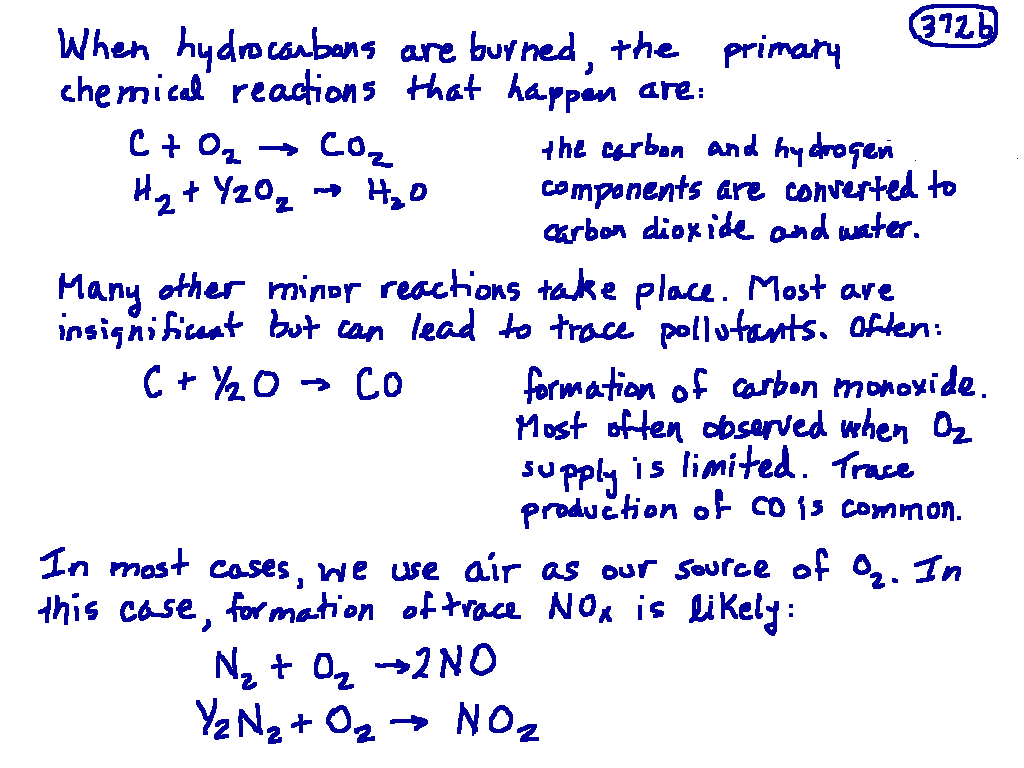 372b
When hydrocarbons are burned, the primary
chemical reactions that happen are:
C + O₂ → CO₂
the carbon and hydrogen
H₂ + ½O₂ → H₂O
components are converted to
carbon dioxide and water.
Many other minor reactions take place. Most are
insignificant but can lead to trace pollutants. Often:
C + ½O → CO
formation of carbon monoxide.
Most often observed when O₂
supply is limited. Trace
production of CO is common.
In most cases, we use air as our source of O₂. In
this case, formation of trace NOx is likely:
N₂ + O₂ → 2NO
½N₂ + O₂ → NO₂